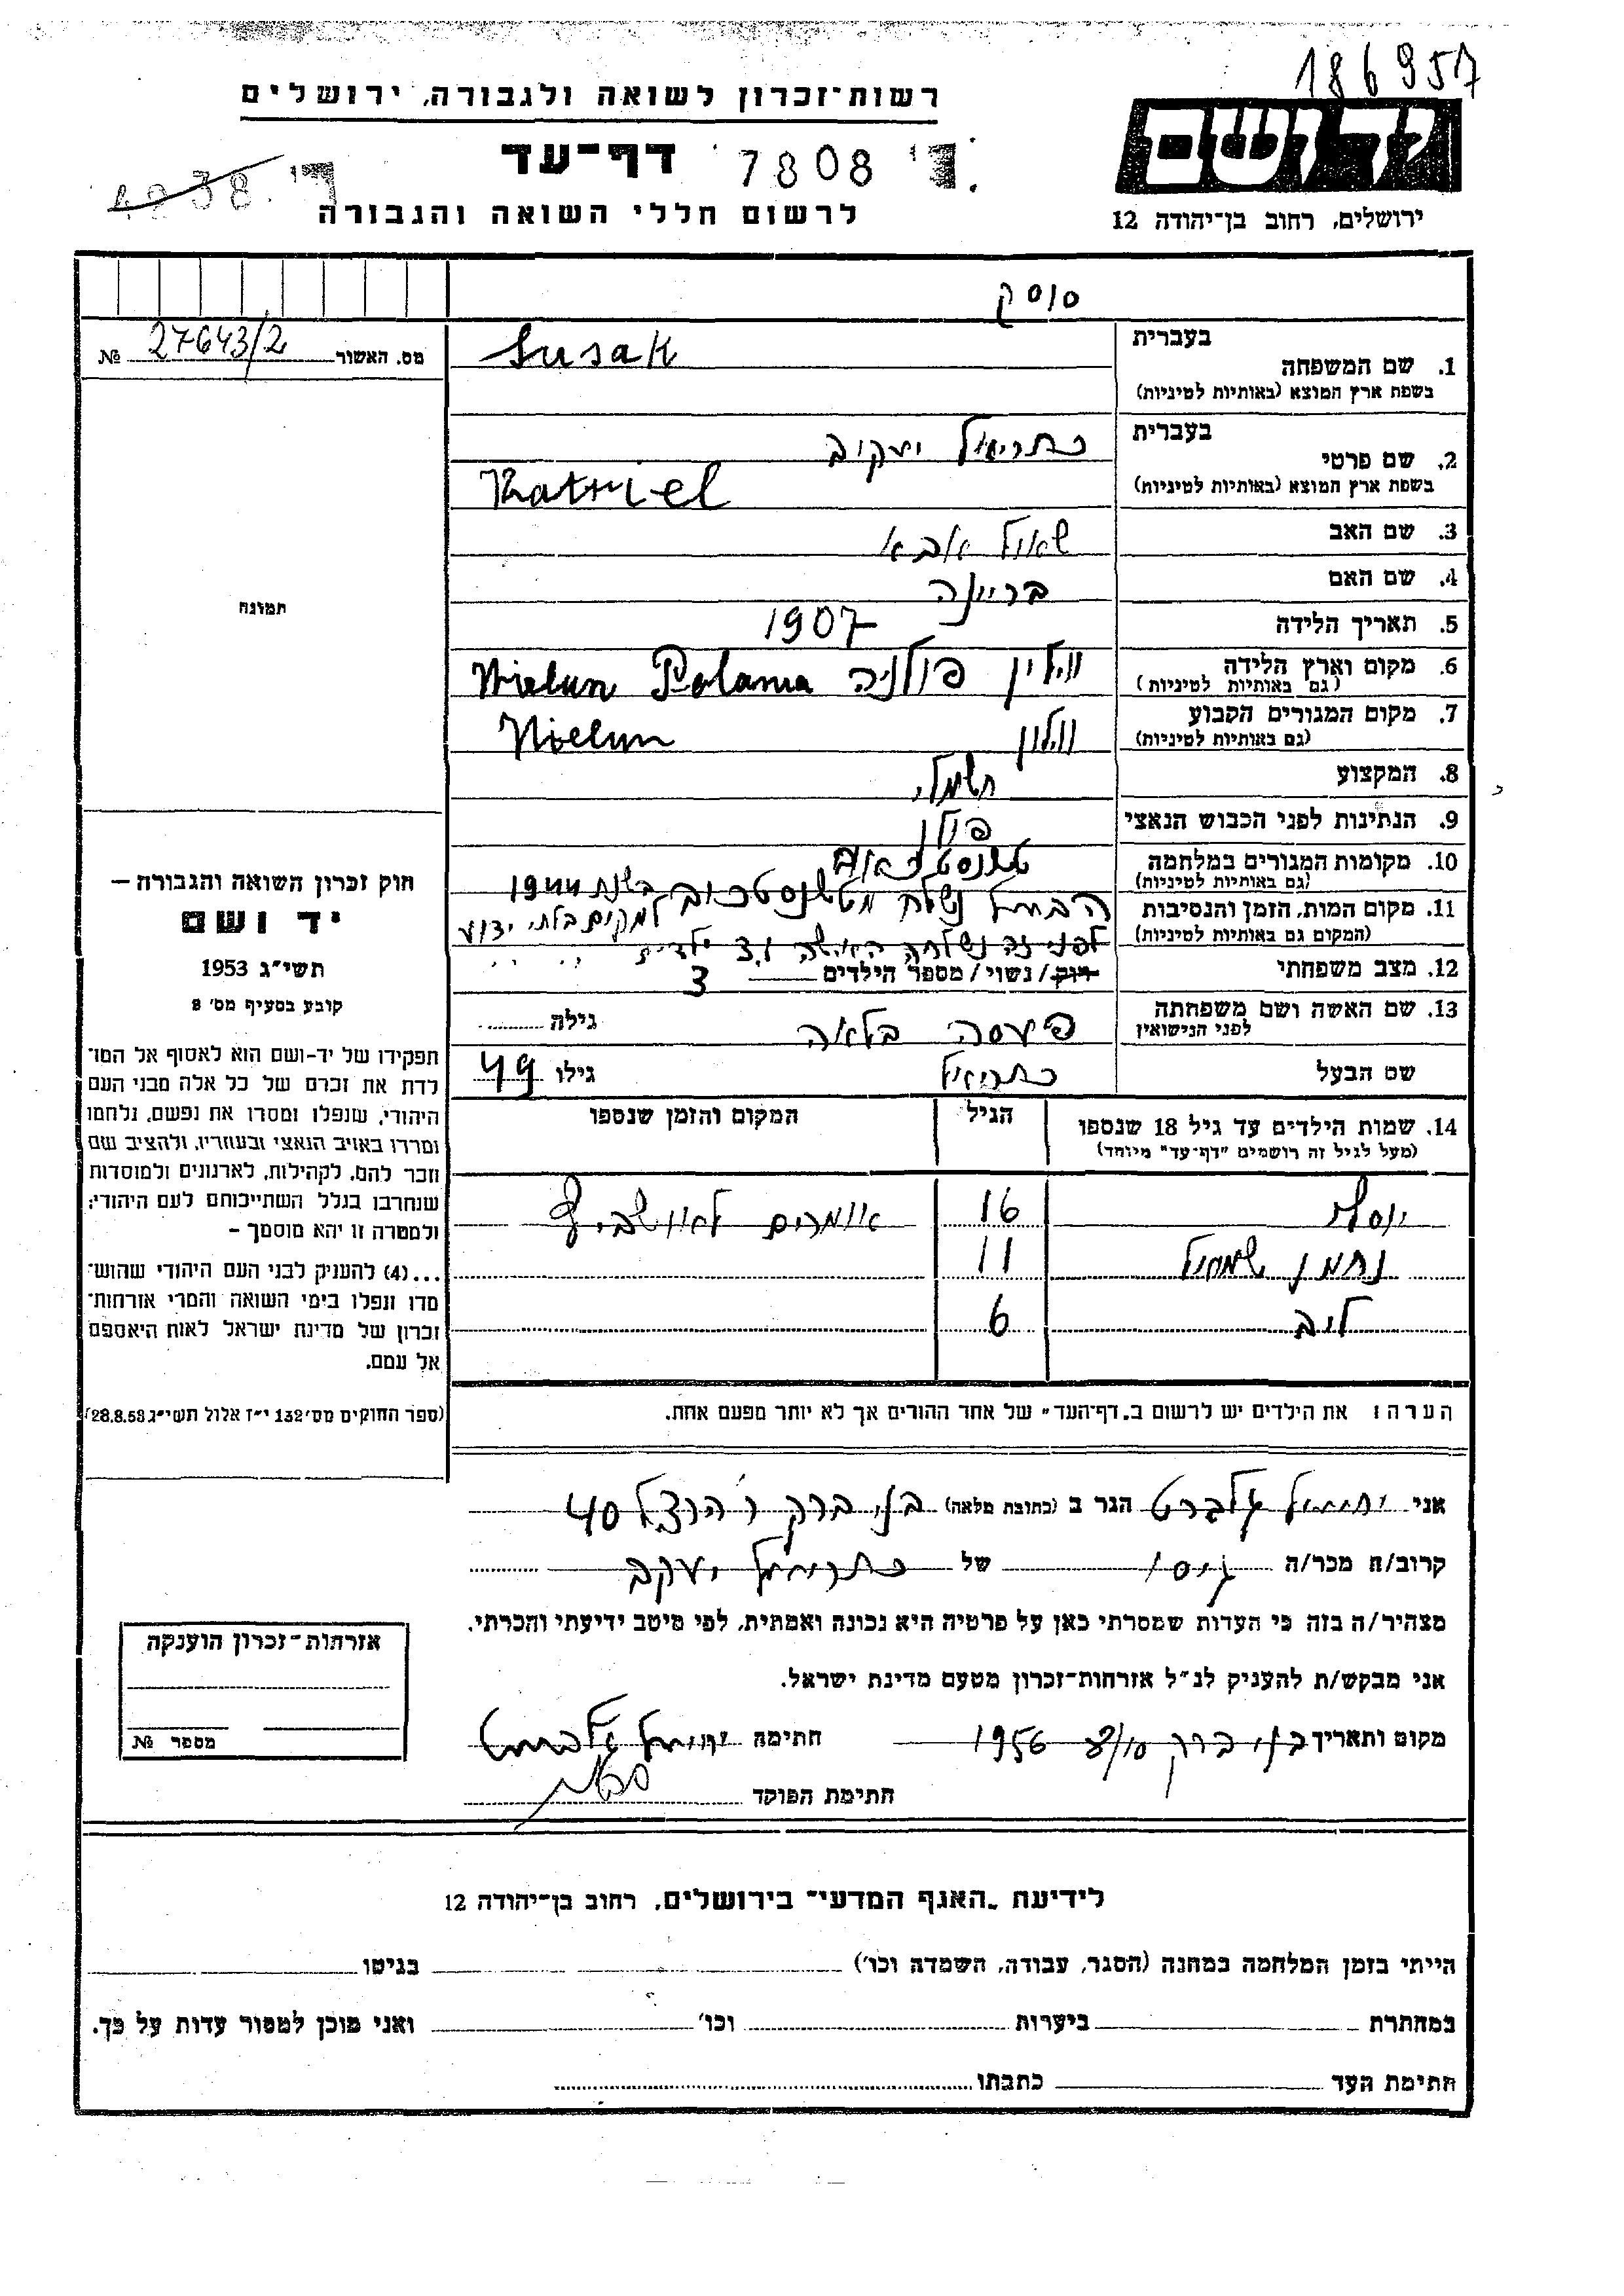 186957
רשות־זכרון לשואה ולגבורה, ירושלים
יד ושם
דף־עד
7808
לרשום חללי השואה והגבורה
ירושלים, רחוב בן־יהודה 12
סוסק
מס. האשור 27643/2 №
בעברית
1. שם המשפחה
בשפת ארץ המוצא (באותיות לטיניות)
Susak
בעברית
2. שם פרטי
בשפת ארץ המוצא (באותיות לטיניות)
כתריאל יעקוב
Katriel
3. שם האב שאול אבא
4. שם האם
5. תאריך הלידה 1907
6. מקום וארץ הלידה
(גם באותיות לטיניות)
ווילין פולניה Wielun Polania
7. מקום המגורים הקבוע
(גם באותיות לטיניות)
ווילון Wielun
8. המקצוע חשמלי
9. הנתינות לפני הכבוש הנאצי פולין
10. מקומות המגורים במלחמה
(גם באותיות לטיניות)
11. מקום המות, הזמן והנסיבות
(המקום גם באותיות לטיניות)
הבעל נשלח מטשנסטכוב בשנת 1944
למקום בלתי ידוע
לפני זה נשלחה האשה ו 3 ילדים " "
12. מצב משפחתי רווק / נשוי / מספר הילדים 3
13. שם האשה ושם משפחתה
לפני הנישואין
בלאה גילה
שם הבעל כתריאל גילו 49
14. שמות הילדים עד גיל 18 שנספו
(מעל לגיל זה רושמים "דף־עד" מיוחד)
הגיל
המקום והזמן שנספו
יוסף 16 אומרים לאושביץ
נתמן שמואל 11
ליב 6
הערה: את הילדים יש לרשום ב„דף־העד" של אחד ההורים אך לא יותר מפעם אחת.
תמונה
חוק זכרון השואה והגבורה —
יד ושם
תשי"ג 1953
קובע בסעיף מס' 2
תפקידו של יד-ושם הוא לאסוף אל המו־
לדת את זכרם של כל אלה מבני העם
היהודי, שנפלו ומסרו את נפשם, נלחמו
ומרדו באויב הנאצי ובעוזריו, ולהציב שם
וזכר להם, לקהילות, לארגונים ולמוסדות
שנחרבו בגלל השתייכותם לעם היהודי;
ולמטרה זו יהא מוסמך —
...(4) להעניק לבני העם היהודי שהוש־
מדו ונפלו בימי השואה והמרי אזרחות־
זכרון של מדינת ישראל לאות היאספם
אל עמם.
(ספר החוקים מס' 132 י"ז אלול תשי"ג 28.8.53)
אני יחיאל גלברט הגר ב (כתובת מלאה) בני ברק ר הרצל 40
קרוב/ה מכר/ה גיסו של כתריאל יעקב
מצהיר/ה בזה כי העדות שמסרתי כאן על פרטיה היא נכונה ואמתית, לפי מיטב ידיעתי והכרתי.
אני מבקש/ת להעניק לנ"ל אזרחות־זכרון מטעם מדינת ישראל.
מקום ותאריך בני ברק 8/10 1956 חתימה יחיאל גלברט
חתימת הפוקד
אזרחות־זכרון הוענקה
מספר №
לידיעת „האגף המדעי" בירושלים, רחוב בן־יהודה 12
הייתי בזמן המלחמה במחנה (הסגר, עבודה, השמדה וכו') בגיטו
במחתרת ביערות וכו' ואני מוכן למסור עדות על כך.
חתימת העד כתבתו